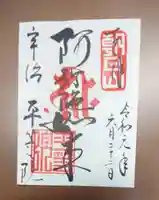 奉拝
令和元年
六月二十二日
阿弥陀如来
宇治
平等院